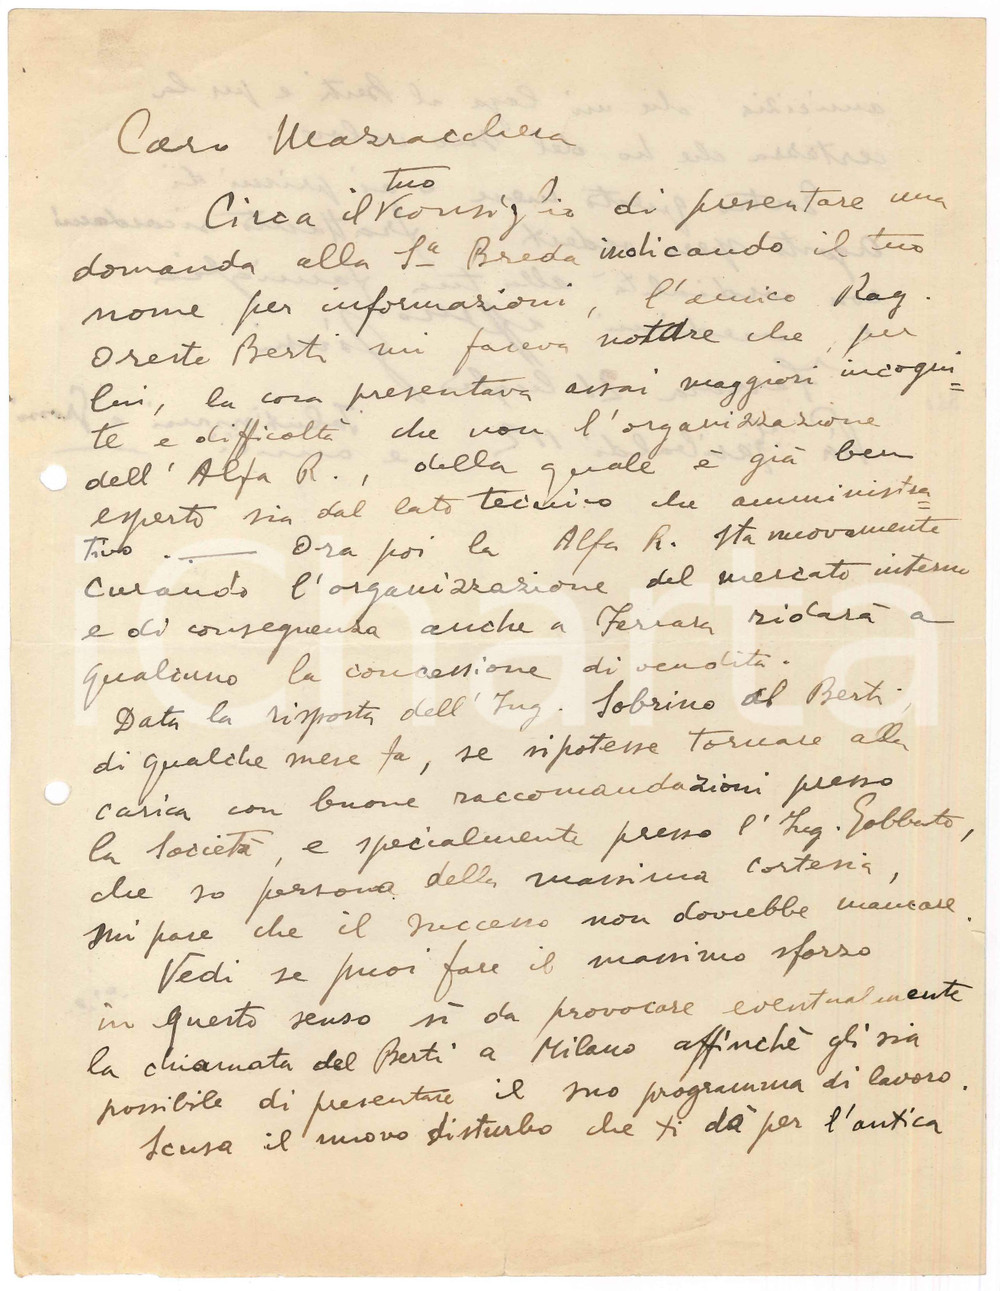 Caro Mazzacchera
Circa il tuo consiglio di presentare una
domanda alla Sa Breda indicando il tuo
nome per informazioni, l'amico Rag.
Oreste Berti mi faceva notare che, per
lui, la cosa presentava assai maggiori incogni=
te e difficoltà che non l'organizzazione
dell'Alfa R., della quale è già ben
esperto sia dal lato tecnico che amministra=
tivo. — Ora poi la Alfa R. sta nuovamente
curando l'organizzazione del mercato interno
e di conseguenza anche a Ferrara ridarà a
qualcuno la concessione di vendita.
Data la risposta dell'Ing. Sobrino al Berti,
di qualche mese fa, se si potesse tornare alla
carica con buone raccomandazioni presso
la Società, e specialmente presso l'Ing. Gobbato,
che so persona della massima cortesia,
mi pare che il successo non dovrebbe mancare.
Vedi se puoi fare il massimo sforzo
in questo senso sì da provocare eventualmente
la chiamata del Berti a Milano affinchè gli sia
possibile di presentare il suo programma di lavoro.
Scusa il nuovo disturbo che ti dà per l'antica
iCharta